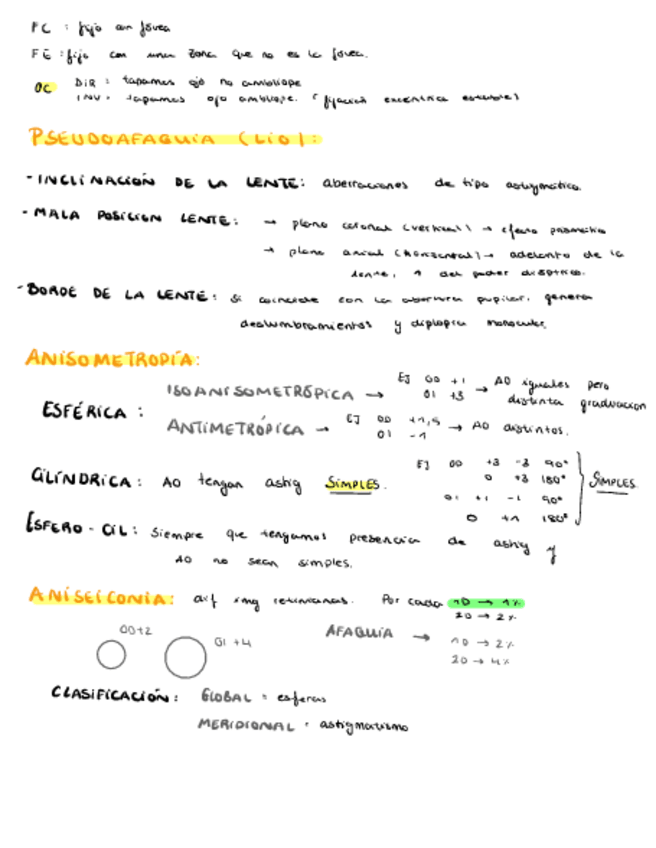 FC : fijo con fóvea
FE : fijo con una zona que no es la fóvea.
OC DIR : tapamos ojo no ambliope
INV. tapamos ojo ambliope. (fijación excéntrica estable)
PSEUDOAFAQUIA (LIO):
- INCLINACIÓN DE LA LENTE: aberraciones de tipo astigmático.
- MALA POSICION LENTE: → plano coronal (vertical) → efecto prismático
→ plano axial (horizontal) → adelanto de la lente, ↑ del poder dióptrico.
- BORDE DE LA LENTE: si coincide con la abertura pupilar, genera
deslumbramientos y diplopia monocular.
ANISOMETROPÍA:
ESFÉRICA :
ISOANISOMETRÓPICA → EJ OD +1 OI +3 → AO iguales pero distinta graduacion
ANTIMETRÓPICA → EJ OD +1,5 OI -1 → AO distintos.
CILÍNDRICA : AO tengan astig SIMPLES.
EJ OD +3 -3 90°
0 +3 180°
OI +1 -1 90°
0 +1 180°
SIMPLES
ESFERO - CIL : Siempre que tengamos presencia de astig y
AO no sean simples.
ANISEICONIA: dif img retinianas. Por cada 1D → 1%
2D → 2%
OD+2 OI +4 AFAQUIA → 1D → 2%
2D → 4%
CLASIFICACIÓN : GLOBAL = esferas
MERIDIONAL = astigmatismo